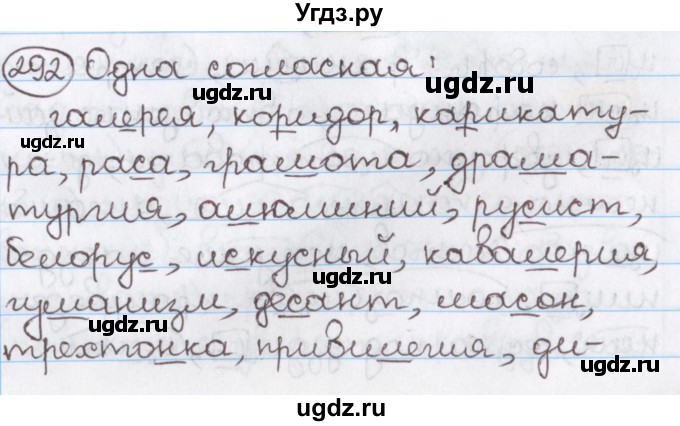 Угдз.ру
292 Одна согласная:
галерея, коридор, карикату-
ра, раса, грамота, драма-
тургия, алюминий, русист,
белорус, искусный, кавалерия,
гуманизм, десант, масон,
трехтонка, привилегия, ди-
ugdz.ru
ugdz.ru
ugdz.ru
ugdz.ru
ugdz.ru
ugdz.ru
ugdz.ru
ugdz.ru
ugdz.ru